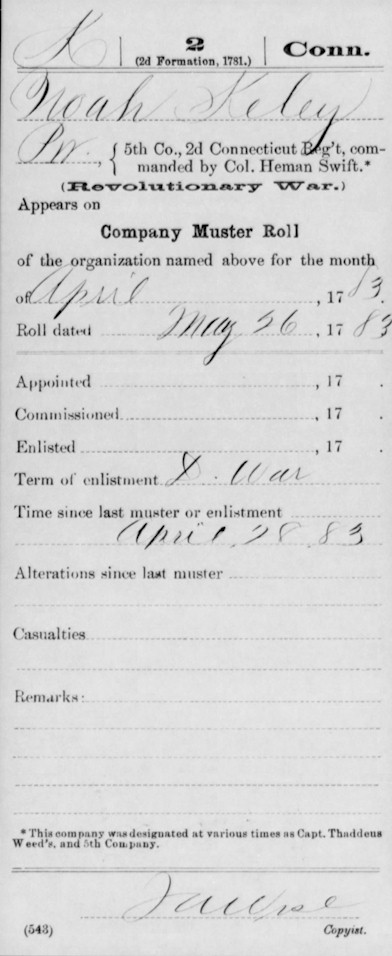 K | 2 | Conn.
(2d Formation, 1781.)
Noah Keley
Pvt., { 5th Co., 2d Connecticut Reg't, com-
manded by Col. Heman Swift.*
(Revolutionary War.)
Appears on
Company Muster Roll
of the organization named above for the month
of April, 1783.
Roll dated May 26, 1783
Appointed , 17 .
Commissioned , 17 .
Enlisted , 17 .
Term of enlistment D. War
Time since last muster or enlistment
April 28 83
Alterations since last muster
Casualties
Remarks:
* This company was designated at various times as Capt. Thaddeus
Weed's, and 5th Company.
(543) Copyist.